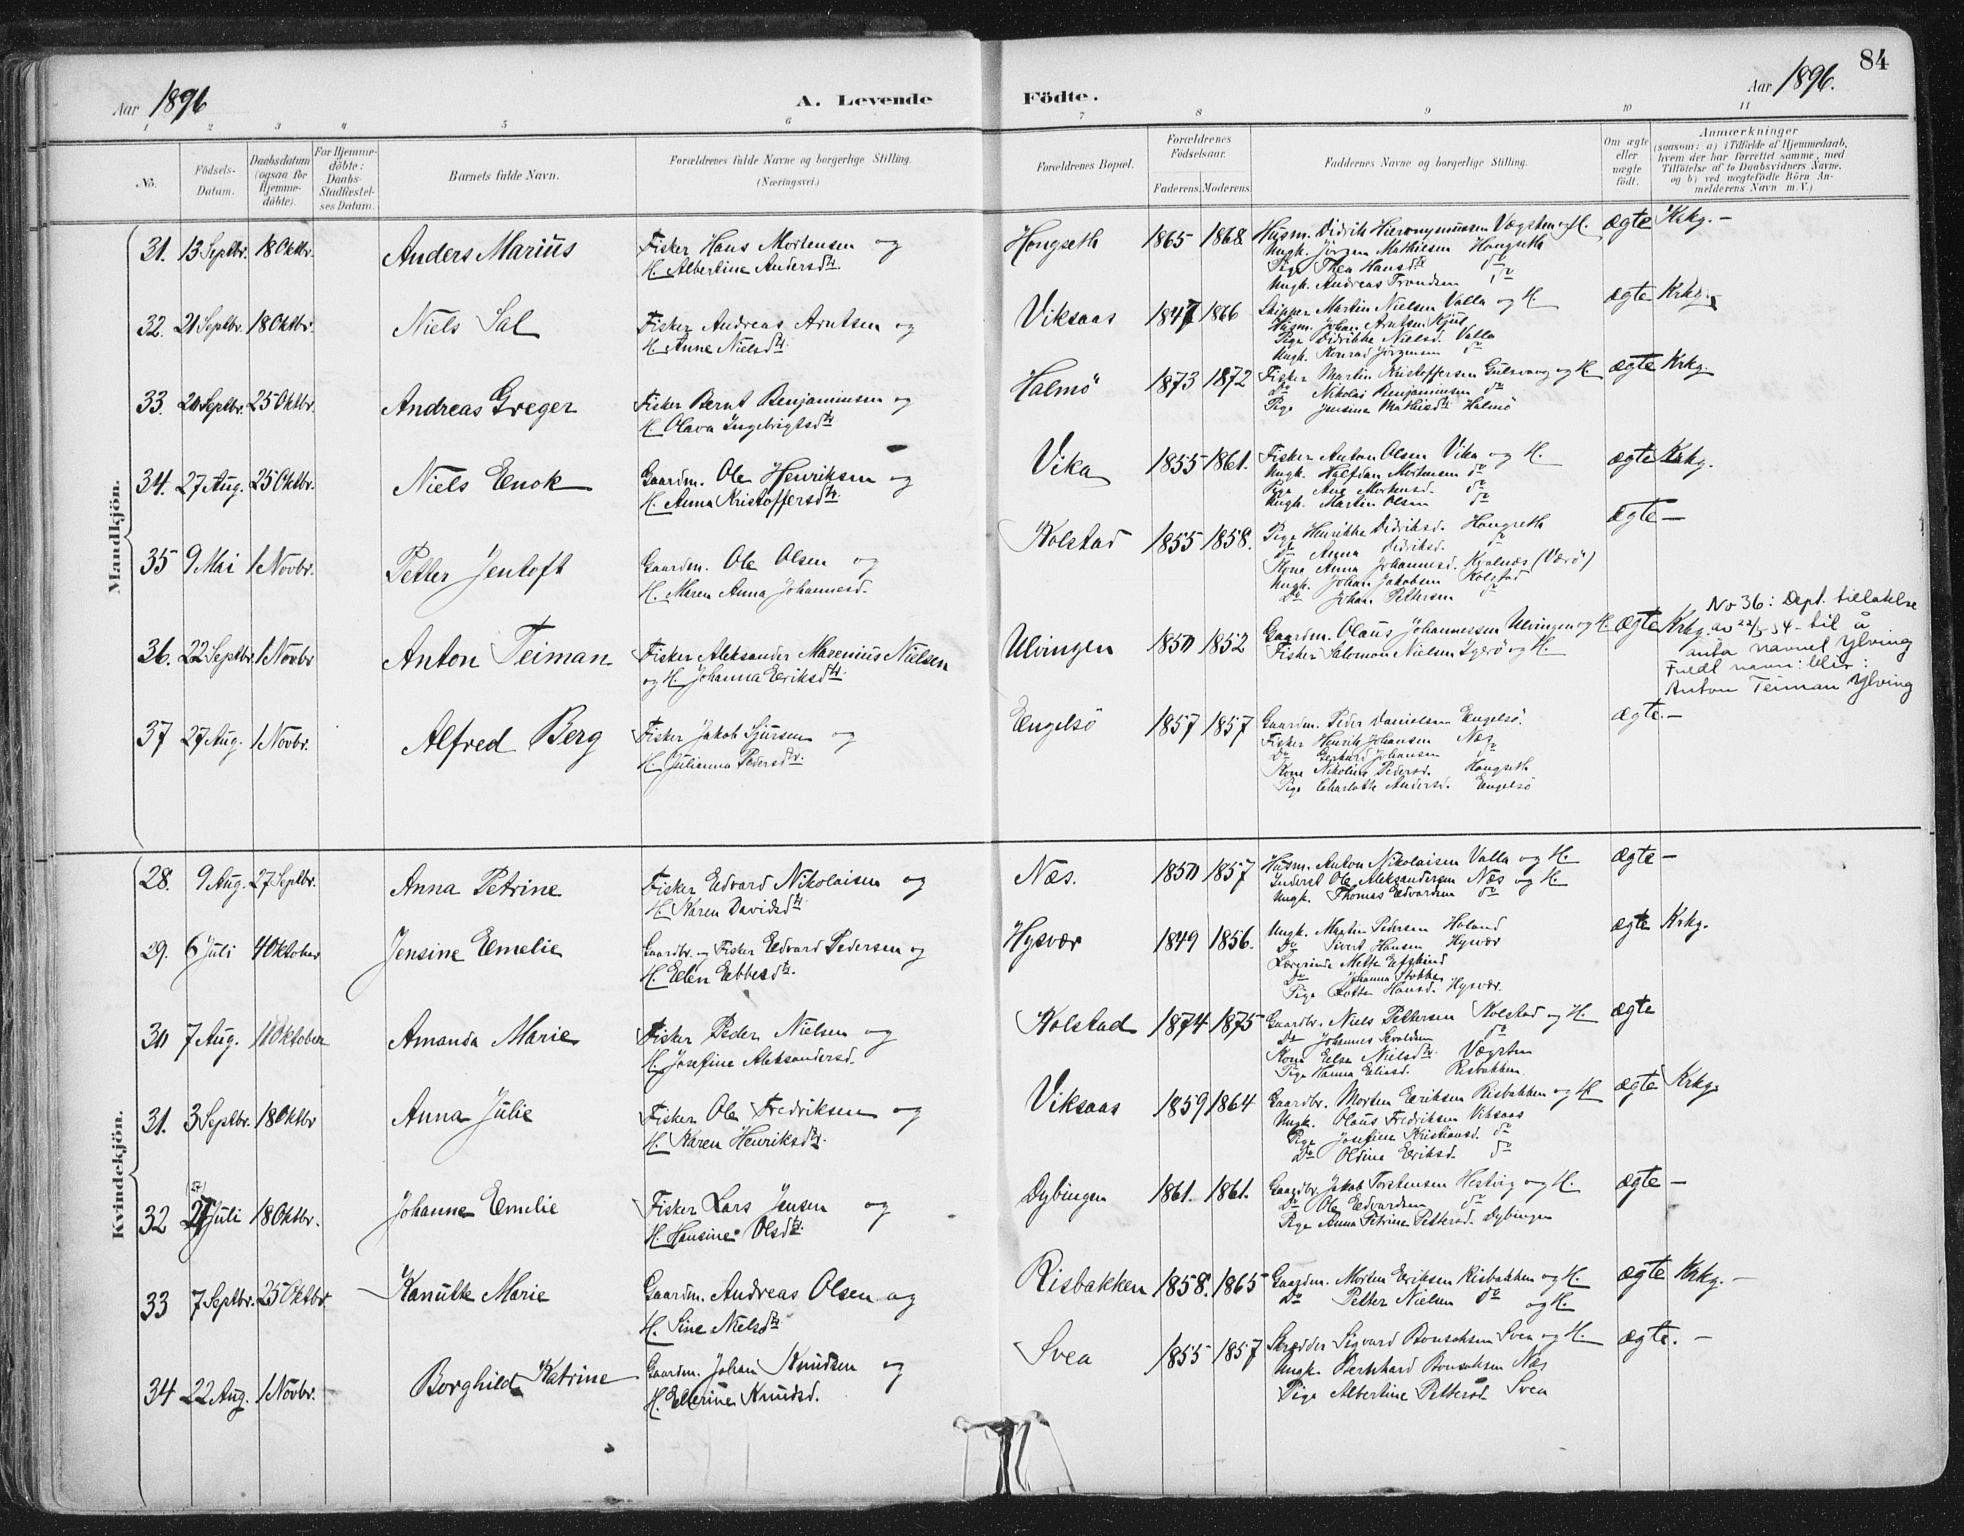 84
Aar 1896 A. Levende Födte. Aar 1896.
1 2 3 4 5 6 7 8 9 10 11
No. Födsels-Datum. Daabsdatum (ogsaa for Hjemmedöbte). For Hjemmedöbte: Daabs-Stadfæstelses Datum. Barnets fulde Navn. Forældrenes fulde Navne og borgerlige Stilling. (Næringsvei.) Forældrenes Bopæl. Forældrenes Födselsaar. Faderens. Moderens. Faddernes Navne og borgerlige Stilling. Om ægte eller uægte födt. Anmærkninger (saasom: a) i Tilfælde af Hjemmedaab, hvem der har forrettet samme, med Tilföielse af to Daabsvidners Navne. og b) ved uægtefödte Börn Anmelderens Navn m. V.)
Mandkjön.
31. 13 Septbr. 18 Oktbr. Anders Marius Fisker Hans Mortensen og Hongseth 1865 1868 Husm. Didrik Hieronymussen Vægsten og H. ægte Krkg. —
H. Albertine Andersdtr. Ungk. Jörgen Mathisen Hongseth
Pige Thea Hansdtr. do
Ungk. Andreas Trondsen do
32. 21 Septbr. 18 Oktbr. Niels Sal Fisker Andreas Arntsen og Viksaas 1847 1866 Skipper Martin Nielsen Valla og H. ægte Krkg.
H. Anne Nielsdtr. Husm. Johan Arntsen
Pige Didrikke Nielsd. Valla
Ungk. Konrad Jörgensen do
33. 20 Septbr. 25 Oktbr. Andreas Greger Fisker Bernt Benjaminsen og Halmö 1873 1872 Fisker Martin Kristoffersen Gulsvaag og H. ægte Krkg.
H. Olava Ingebrigtsdtr. Do Nikolai Benjaminsen do
Pige Jensine Mathisdtr. Halmö
34. 27 Aug. 25 Oktbr. Niels Enok Gaardm. Ole Henriksen og Vika 1855 1861. Fisker Anton Olsen Vika og H. ægte Krkg.
H. Anna Kristoffersdtr. Ungk. Halfdan Mortensen do
Pige Ane Mortensd. do
Ungk. Martin Olsen do
35 9 Mai 1 Novbr. Petter Jentoft Gaardm. Ole Olsen og Kolstad 1855 1858. Pige Henrikke Didriksd. Hongseth ægte —
H. Maren Anna Johannesd. do Anna Didriksd. do
Kone Anna Johannesd. Kvalnæs (Værö)
Ungk. Johan Jakobsen Kolstad
Do Johan Pettersen do
36. 22 Septbr. 1 Novbr Anton Teiman Fisker Aleksander Maxenius Nielsen Ulvingen 1850 1852 Gaardm. Olaus Johannessen Ulvingen og H. ægte Krkg.
og H. Johanna Eriksdtr. Fisker Salomon Nielsen Igerö og H.
No 36: Dept. tillatelse
av 22/5-34 - til å
anta navnet Ylving
Fuldt navn: blir:
Anton Teiman Ylving
37 27 Aug. 1 Novbr. Alfred Berg Fisker Jakob Sjursen og Engelsö 1857 1857 Gaardm. Peder Danielsen Engelsö. ægte. —
H. Julianna Pedersdtr. Fisker Henrik Johansen Næs
Do Gerhard Johansen do
Kone Nikoline Pedersd. Hongseth
Pige Charlotte Andersd. Engelsö
Kvindekjön.
28. 9 Aug. 27 Septbr. Anna Petrine Fisker Edvard Nikolaisen og Næs. 1850 1857 Husm. Anton Nikolaisen Valla og H. ægte —
H. Karen Davidsdtr. Inderst Ole Aleksandersen Næs og H.
Ungk. Thomas Edvardsen do
29. 6 Juli 4 Oktober Jensine Emelie Gaardbr. og Fisker Edvard Pedersen og Hysvær 1849 1856. Ungk. Martin Pedersen Holand ægte Krkg.
H. Elen Ebbesdtr. Do Sivert Hansen Hysvær
Lærerinde Mette Efskind
Do Johanna Stokke
Pige Lotte Hansd. Hysvær.
30 7 Aug. 11 Oktober Amanda Marie Fisker Peder Nielsen og Kolstad 1874 1875 Gaardbr. Niels Pettersen Kolstad og H. ægte
H. Josefine Aleksandersd. Do Johannes do
Kone Elsa Nielsdtr. Vægsten
Pige Hanna Eliasd. Risbakken
31. 3 Septbr. 18 Oktbr Anna Julie Fisker Ole Fredriksen og Viksaas 1859 1864 Gaardbr. Morten Eriksen Risbakken og H ægte Krkg.
H. Karen Henriksdtr. Ungk. Olaus Fredriksen Viksaas
Pige Josefine Kristiansd. do
Do Oldine Eriksd. do
32 27 Juli 18 Oktbr. Johanne Emelie Fisker Lars Jensen og Dybingen 1861. 1861. Gaardbr. Jakob Torstensen Hestvig og H. ægte —
H. Hansine Olsdtr. Do Ole Edvardsen do
Pige Anna Petrine Pettersd. Dybingen
33 7 Septbr. 25 Oktbr Kanutte Marie Gaardm. Andreas Olsen og Risbakken 1858. 1865 Gaardm. Morten Eriksen Risbakken og H. ægte Krkg. —
H. Sine Nielsdtr. Do Petter Nielsen do og H.
34 22 Aug. 1 Novbr. Borghild Katrine Gaardm. Johan Knudsen og Svea 1855 1857 Skrædder Sigvard Bonsaksen Svea og H. ægte. —
H. Elerine Knudsd. Ungk. Bernhard Bonsaksen Næs
Pige Albertine Pettersd. Svea